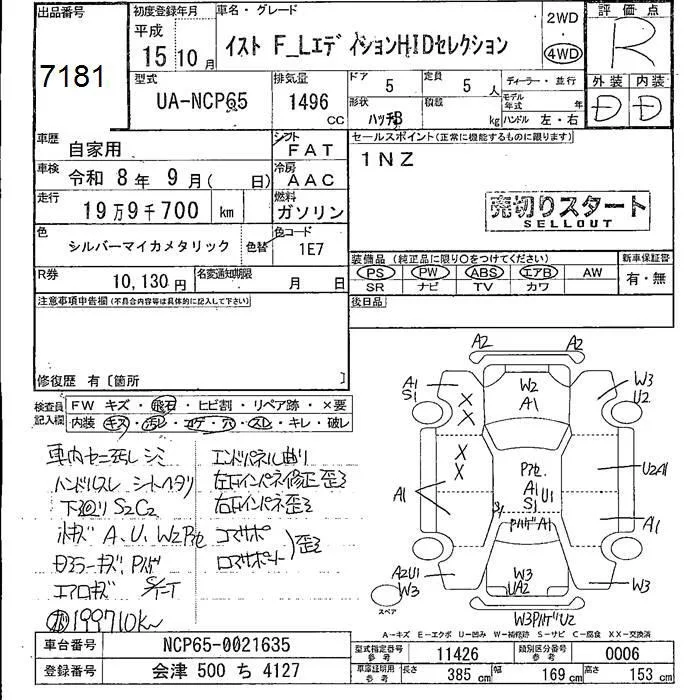 出品番号
7181
初度登録年月
平成
15 10 月
車名・グレード
イスト F_LエディションHIDセレクション
2WD
4WD
評価点
R
型式
UA-NCP65
排気量
1496
CC
ドア
5
定員
5 人
ディーラー・並行
形状
ハッチB
積載
kg
モデル年式
年
ハンドル 左・右
外装 内装
D D
車歴
自家用
シフト
FAT
車検
令和 8 年 9 月 ( 日)
冷房
AAC
走行
19万9千700 km
燃料
ガソリン
色
シルバーマイカメタリック
色替
色コード
1E7
R券
10,130 円
名変通知期限
月 日
セールスポイント(正常に機能するものに限ります)
1NZ
売切りスタート
SELLOUT
装備品(純正品に限り○をつけてください)
PS PW ABS エアB AW
SR ナビ TV カワ
新車保証書
有・無
後日品
注意事項申告欄(不具合内容等は具体的に記入して下さい)
修復歴 有〔箇所 〕
検査員記入欄
FW キズ・飛石・ヒビ割・リペア跡・×要
内装 キズ・汚レ・コゲ・穴・スレ・キレ・破レ
車内セニ汚レシミ
ハンドルスレ シートヘタリ
下廻り S2C2
A、U、W2
エアロキズ
199710K
エンドパネル曲り
左インパネ修正歪
右インパネ歪
コアサポ
ロアサポート
歪
A2 A2
A1
S1
W2
A1
W3
U2
X
X
X
X
A1
A1
S1
U1
U2A1
A1
S1
A1
A2U1
W3
スペア
W3
UA2
W3
W3 U2
A-キズ E-エクボ U-凹み W-補修跡 S-サビ C-腐食 XX-交換済
車台番号
NCP65-0021635
登録番号
会津 500 ち 4127
型式指定番号
参考
11426
類別区分番号
参考
0006
車庫証明用
参考
長さ 385 cm
幅 169 cm
高さ 153 cm